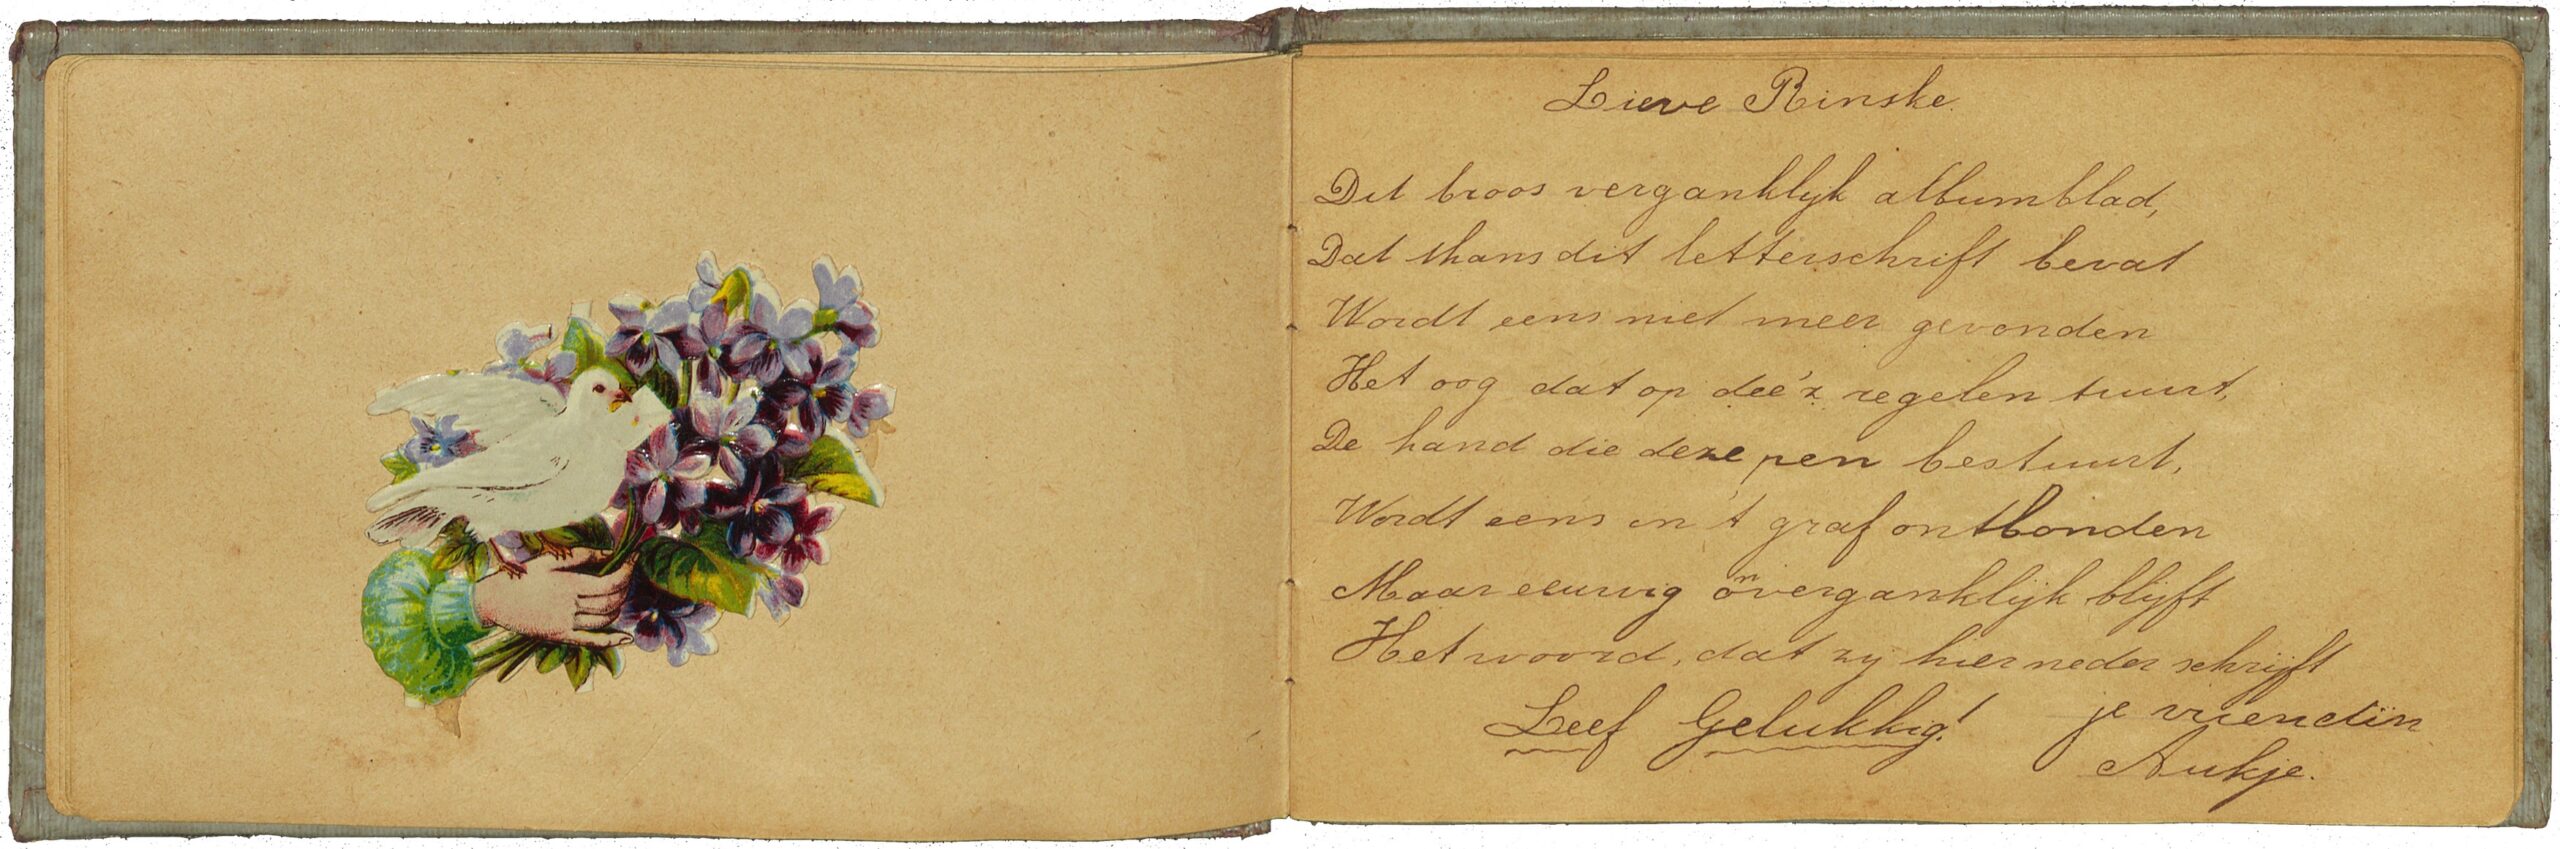 Lieve Rinske.
Dit broos verganklijk albumblad,
Dat thans dit letterschrift bevat
Wordt eens niet meer gevonden
Het oog dat op dee'z regelen tuurt,
De hand die deze pen bestuurt,
Wordt eens in 't graf ontbonden
Maar eeuwig onverganklijk blijft
Het woord, dat zij hier neder schrijft
Leef Gelukkig! je vriendin
Aukje.